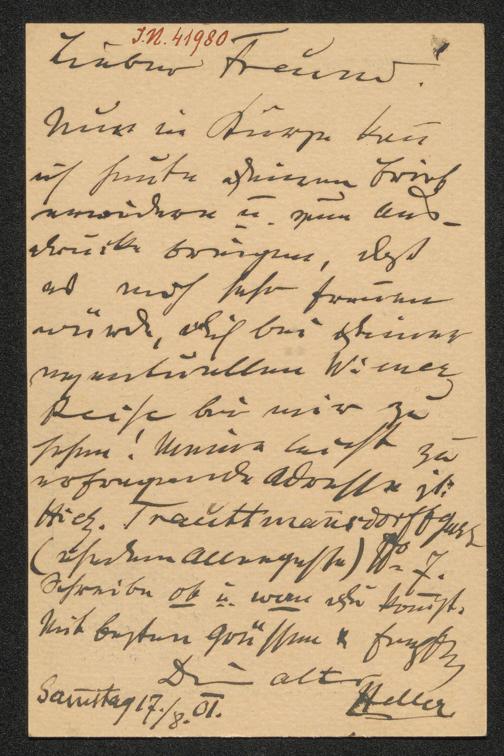 J.N. 41980
Lieber Freund!
Nur in Kürze kan̄
ich heute Deinen Brief
erwidern u. zum Aus-
drucke bringen, daß
es mich sehr freuen
würde, Dich bei Deiner
eventuellen Wiener
Reise bei mir zu
sehen! Meine leicht zu
erfragende Adresse ist:
Hietz. Trauttmansdorffgasse
(ehedem Alleegasse) No. 7.
Schreibe ob u. wan̄ Du kom̄st.
Mit besten Grüssen
Dein alter
Heller
Samstag 17./8. 01.